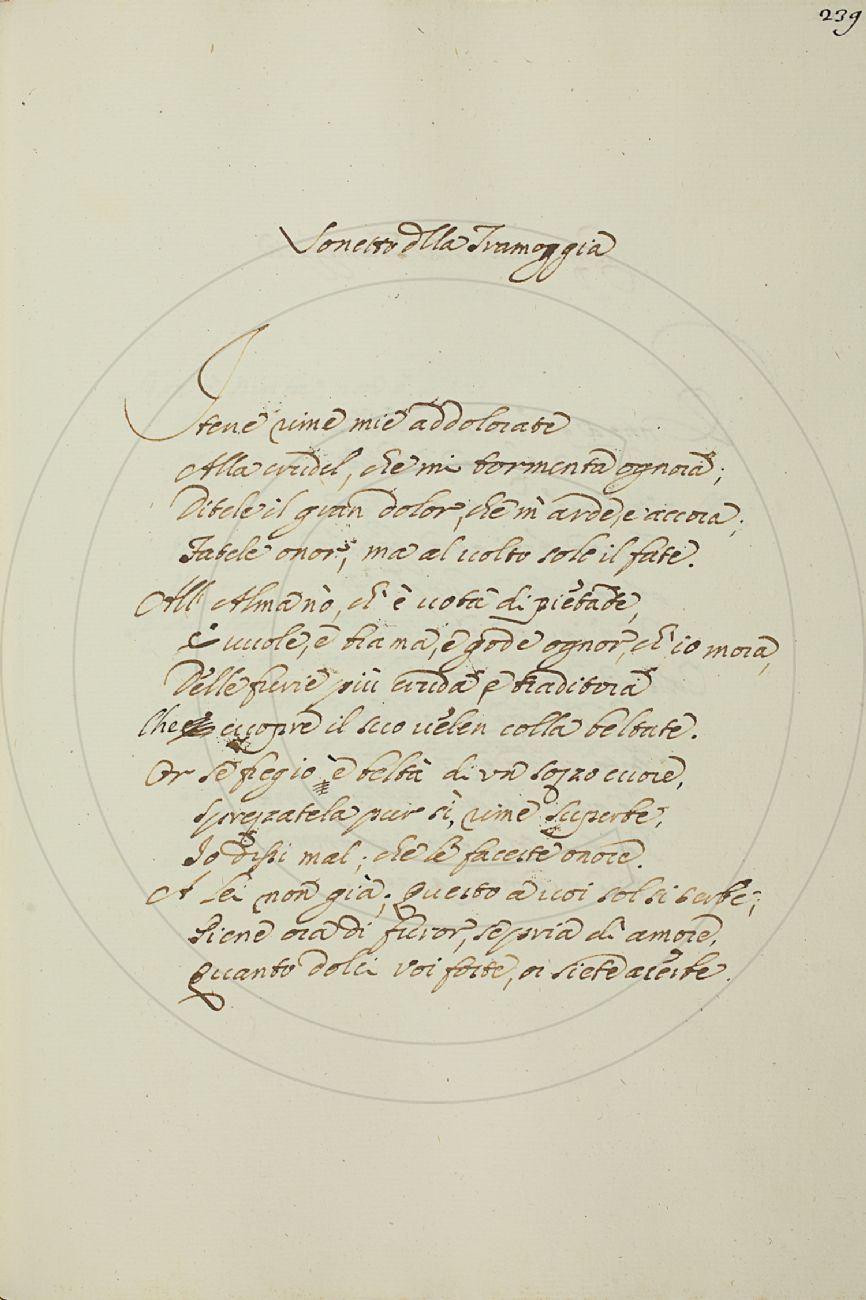 239
Sonetto della Tramoggia
Itene rime mie addolorate
Alla crudel, che mi tormenta ognora;
Ditele il gran dolor, che m'arde, e accora;
Fatele onor, ma al volto solo il fate.
All'Alma nò, ch'è vota di pietate,
E vuole, e brama, e gode ognor, ch'io mora,
Delle fiere più cruda e traditora
Che cuopre il suo velen colla beltate.
Or se pregio è beltà di un sozzo cuore,
Sprezzatela pur sì, rime superbe;
Io dissi mal, che le faceste onore.
A lei non già; Questo a voi sol si serbe;
Piene ora di furor, se pria di amore,
Quanto dolci voi foste, or siete acerbe.